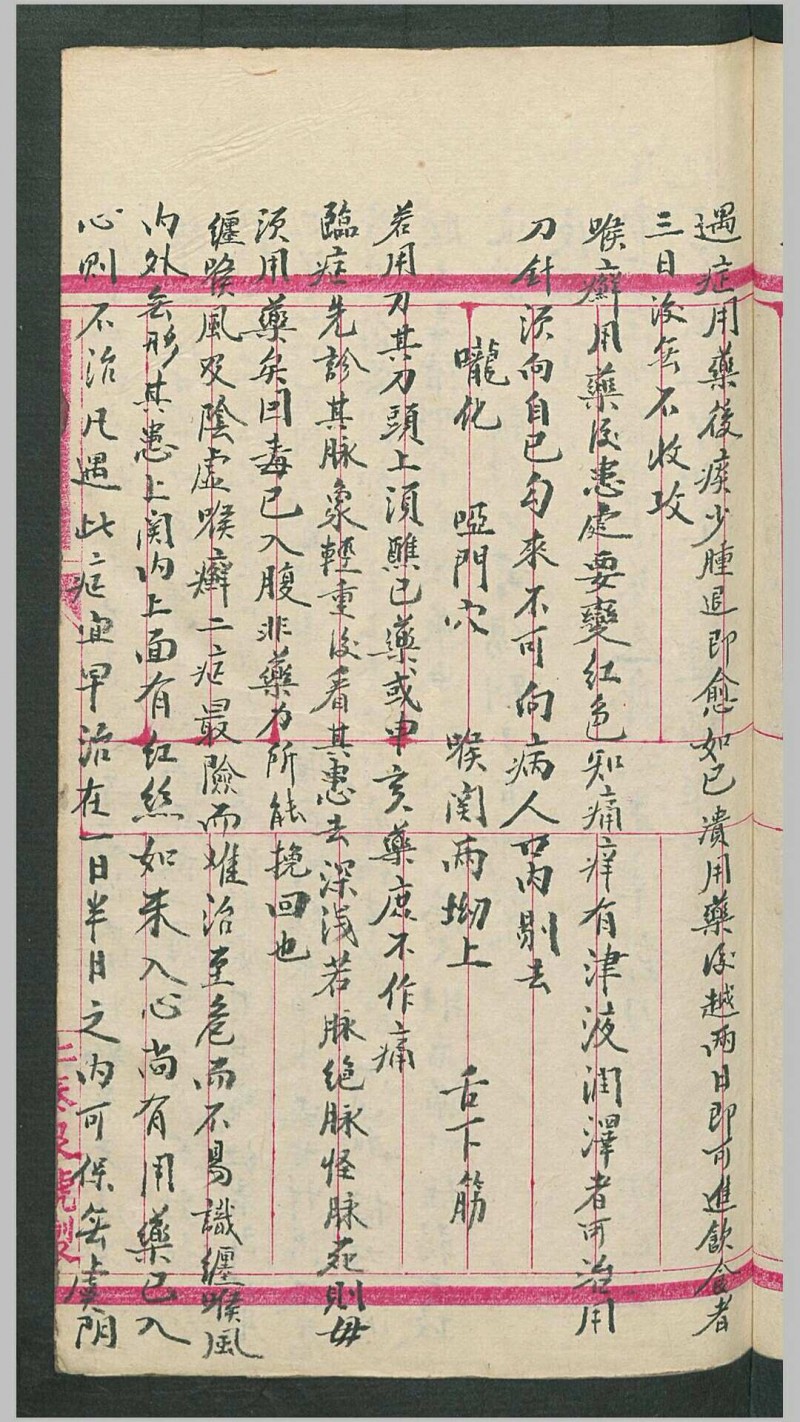 遇症用藥後痰少腫退即愈如已潰用藥後越兩日即可進飲食者
三日後無不收攻
喉癬用藥後患處要變紅色知痛痒有津液潤澤者可治用
刀針須向自已勾來不可向病人口內剔去
嚨化 啞門穴 喉関兩坳上 舌下筋
若用刀其刀頭上須醮已藥或申亥藥庶不作痛
臨症先診其脉象輕重後看其患去深淺若脉絶脉怪脉死則毋
須用藥矣因毒已入腹非藥力所能挽回也
纏喉風及陰虛喉癬二症最險而堆治至危而不易識纏喉風
內外無形其患上関內上面有紅絲如未入心尚有用藥已入
心則不治凡遇此症宜早治在一日半日之內可保無虞陰